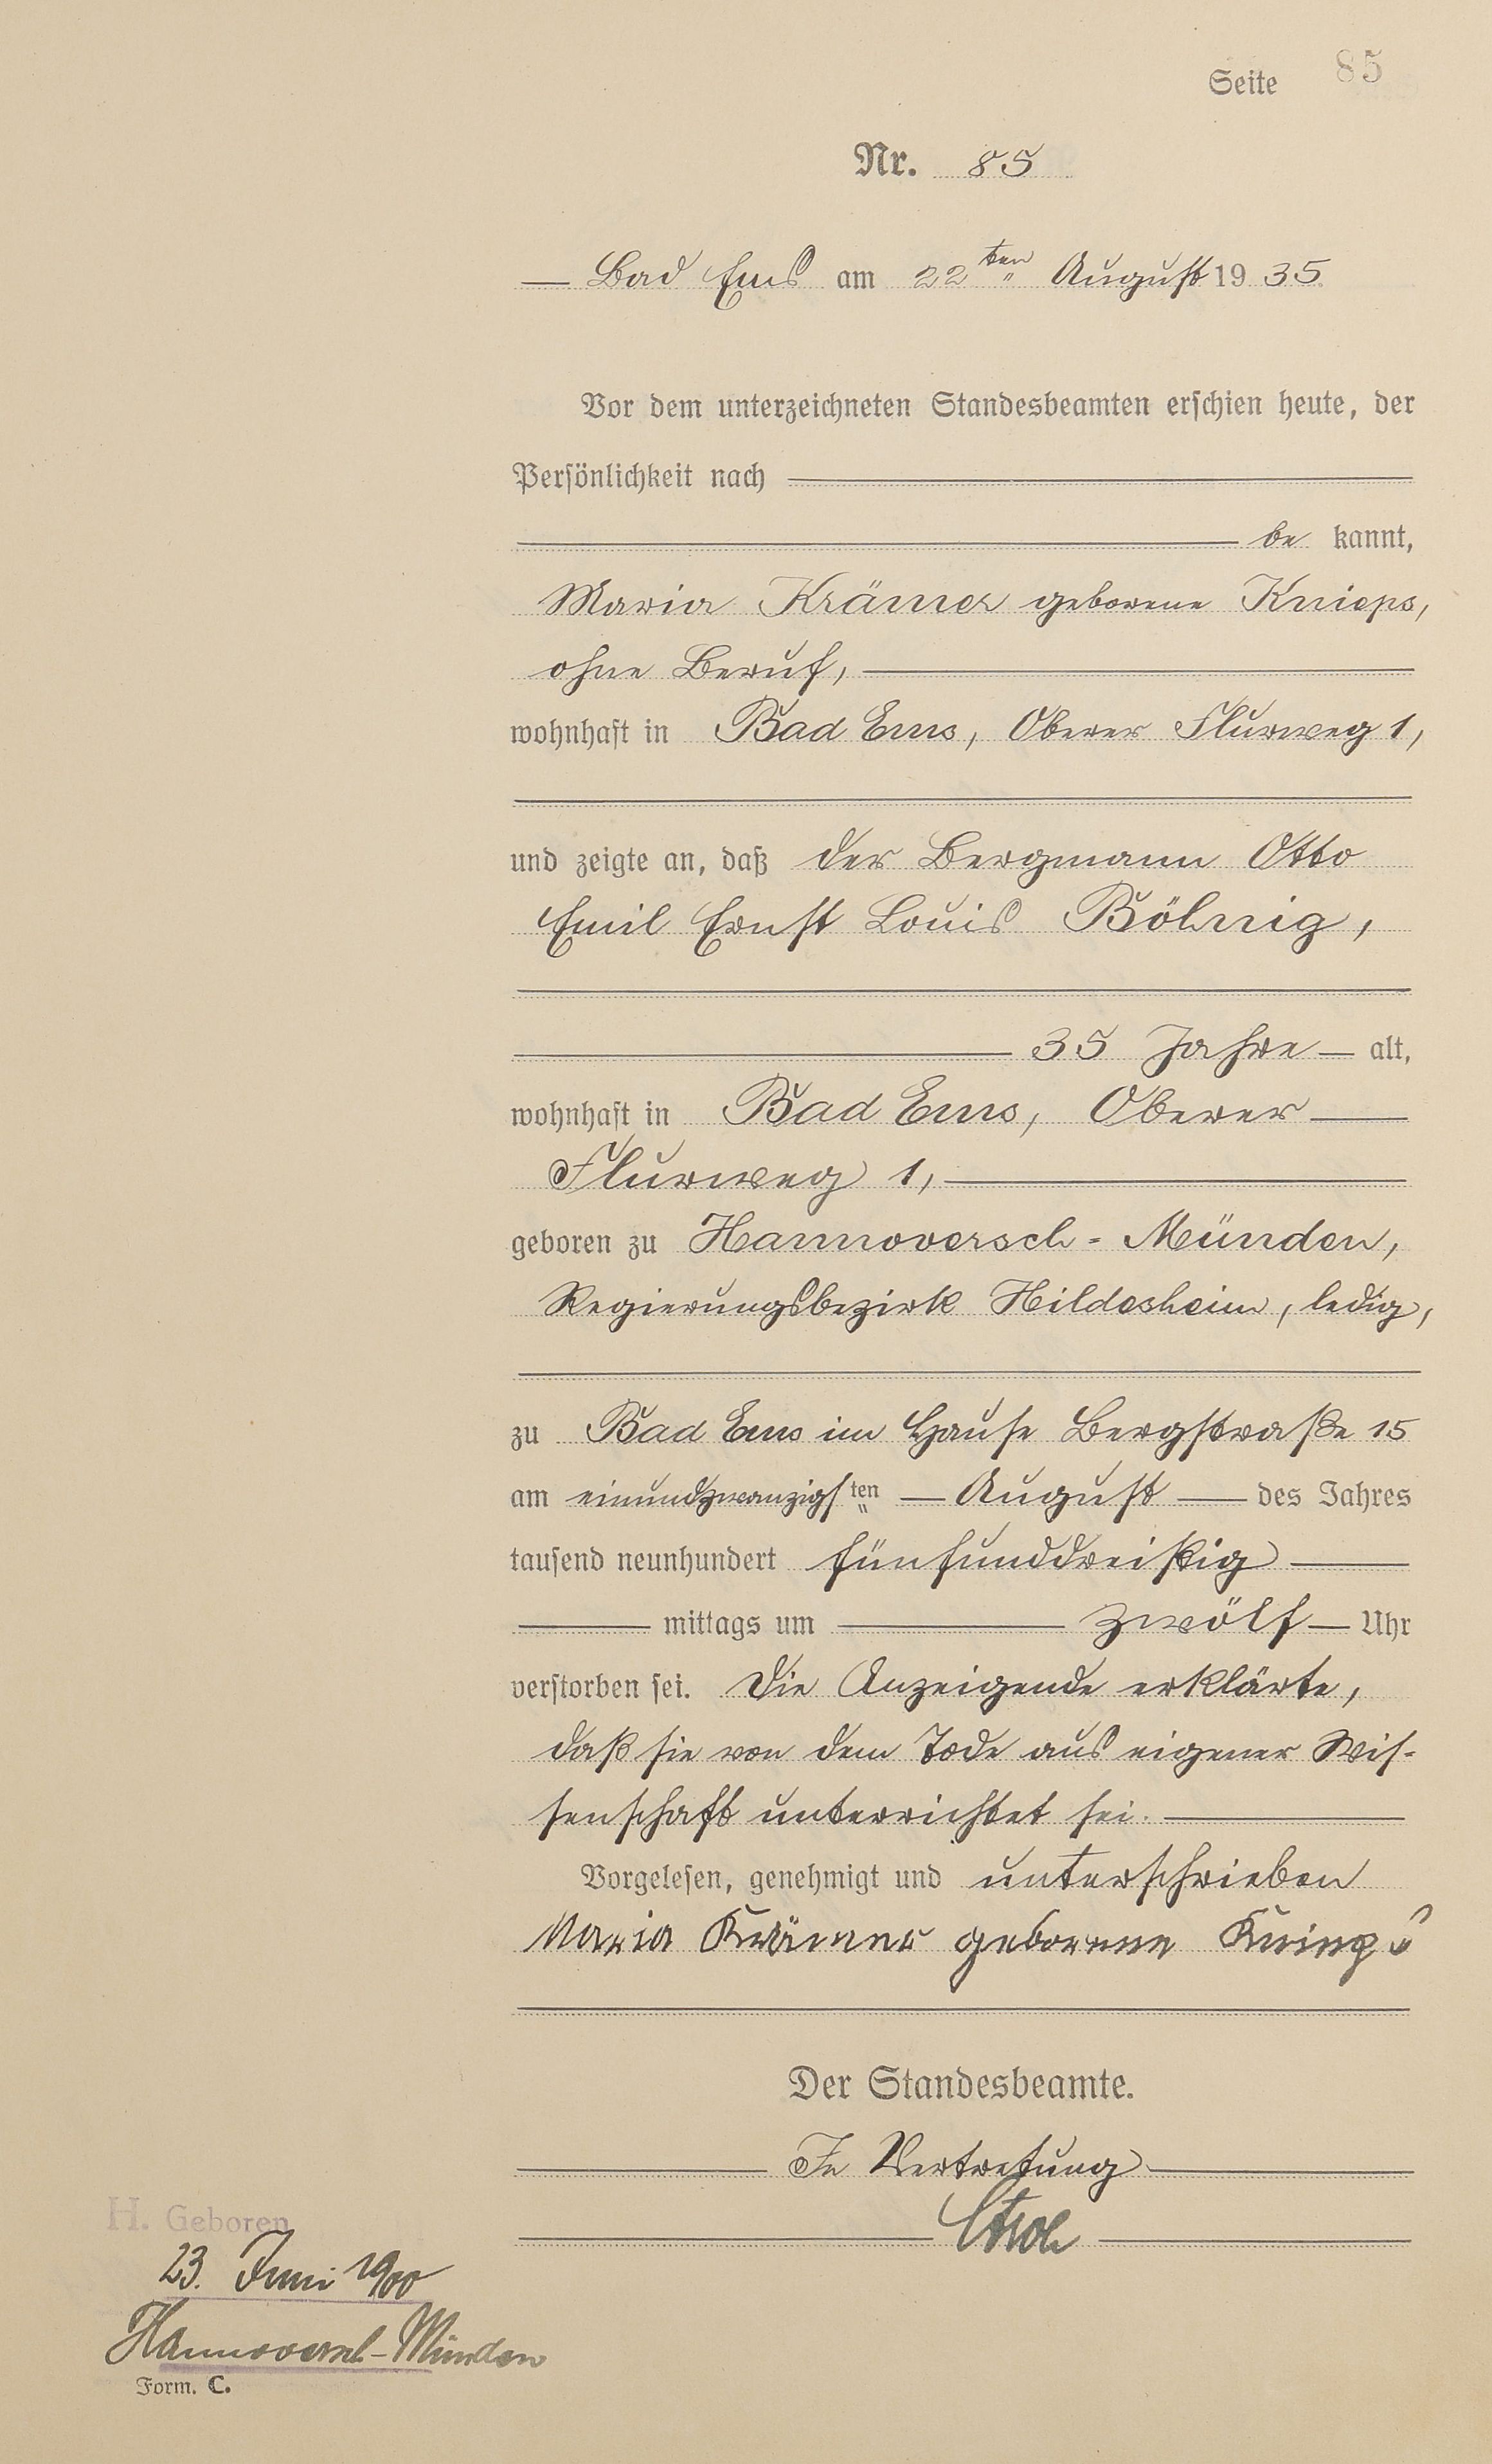 Seite 85
Nr. 85
— Bad Ems am 22ten August 1935.
Vor dem unterzeichneten Standesbeamten erschien heute, der
Persönlichkeit nach
be kannt,
Maria Krämer geborene Knieps,
ohne Beruf,
wohnhaft in Bad Ems, Oberer Flurweg 1,
und zeigte an, daß der Bergmann Otto
Emil Ernst Louis Böhnig,
35 Jahre — alt,
wohnhaft in Bad Ems, Oberer
Flurweg 1,
geboren zu Hannoversch-Münden,
Regierungsbezirk Hildesheim, ledig,
zu Bad Ems im Hause Bergstraße 15
am einundzwanzigsten — August — des Jahres
tausend neunhundert fünfunddreißig
mittags um zwölf — Uhr
verstorben sei. Die Anzeigende erklärte,
daß sie von dem Tode aus eigener Wis-
senschaft unterrichtet sei.
Vorgelesen, genehmigt und unterschrieben
Maria Krämer geborene Knieps
Der Standesbeamte.
In Vertretung
H. Geboren
23. Juni 1900
Hannoversch-Münden
Form. C.